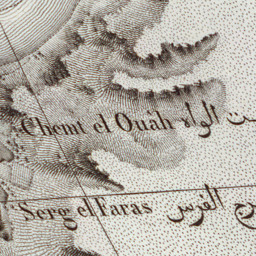 Chemt el Ouâh ت الواه
Serg el Faras رج الفرس